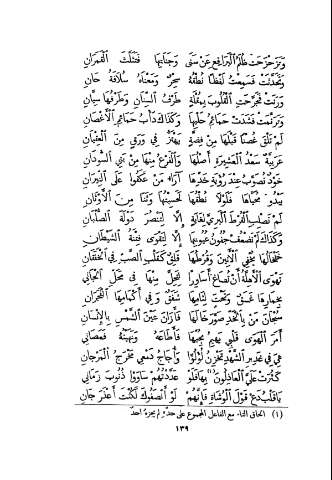 وَتَزَحْزَحَتْ ظُلَمُ الْبَرَاقِعِ عَنْ سَنَى وَجَنَاتِهَا فَتَثَلَّثَ الْقَمَرَانِ
وَتَحَدَّثَتْ فَسَمِعْتُ لَفْظًا نُطْقُهُ سِحْرٌ وَمَعْنَاهُ سُلَافَةُ حَانِ
وَرَنَتْ فَجَرَّحَتِ الْقُلُوبَ بِمُقْلَةٍ طَرْفُ السِّنَانِ وَطَرْفُهَا سِيَّانِ
وَتَرَنَّمَتْ فَشَدَتْ حَمَائِمُ حَلْيِهَا وَكَذَاكَ دَأْبُ حَمَائِمِ الْأَغْصَانِ
لَمْ تَلْقَ غُصْنًا قَبْلَهَا مِنْ فِضَّةٍ يَهْتَزُّ فِي وَرَقٍ مِنَ الْعِقْيَانِ
عَرَبِيَّةٌ سَعْدُ الْعَشِيرَةِ أَصْلُهَا وَالْفَرْعُ مِنْهَا مِنْ بَنِي السُّودَانِ
خَوْدٌ تُصَوِّبُ عِنْدَ رُؤْيَةِ خَدِّهَا آرَاءَ مَنْ عَكَفُوا عَلَى النِّيرَانِ
يَبْدُو مُحَيَّاهَا فَلَوْلَا نُطْقُهَا لَحَسِبْتُهَا وَثَنًا مِنَ الْأَوْثَانِ
لَمْ تَصْلُبِ الْقُرْطَ الْبَرِيَّ لِغَايَةٍ إِلَّا لِتَنْصُرَ دَوْلَةَ الصُّلْبَانِ
وَكَذَاكَ لَمْ تَضْعُفْ جُفُونُ عُيُونِهَا إِلَّا لِتَقْوَى فِتْنَةُ الشَّيْطَانِ
خَلْخَالُهَا يُخْفِي الْأَنِينَ وَقُرْطُهَا قَلِقٌ كَقَلْبِ الصَّبِّ فِي الْخَفَقَانِ
تَهْوَى الْأَهِلَّةُ أَنْ تُصَاغَ أَسَاوِرًا لِتَحِلَّ مِنْهَا فِي مَحَلِّ الْجَانِي
بِخِمَارِهَا غَسَقٌ وَتَحْتَ لِثَامِهَا شَفَقٌ وَفِي أَكْمَامِهَا الْفَجْرَانِ
سُبْحَانَ مَنْ بِالْخَدِّ صَوَّرَ خَالَهَا فَأَزَانَ عَيْنَ الشَّمْسِ بِالْإِنْسَانِ
أَمَرَ الْهَوَى قَلْبِي يَهِيمُ بِحُبِّهَا فَأَطَاعَهُ وَنَهَيْتُهُ فَعَصَانِي
هِيَ فِي غَدِيرِ الشَّهْدِ تَخْزُنُ لُؤْلُؤًا وَأُجَاجُ دَمْعِي مُخْرِجُ الْمَرْجَانِ
كَثُرَتْ عَلَيَّ الْعَاذِلُونَ بِهَا فَلَوْ عَدَدْتُهُمْ سَاوَوْا ذُنُوبَ زَمَانِي
يَا قَلْبُ دَعْ قَوْلَ الْوُشَاةِ فَإِنَّهُمْ لَوْ أَنْصَفُوكَ لَكُنْتَ أَعْذَرَ جَانِ
(١) الحاق التاء مع الفاعل المجموع على حدّه لم يجزه احد
١٣٩